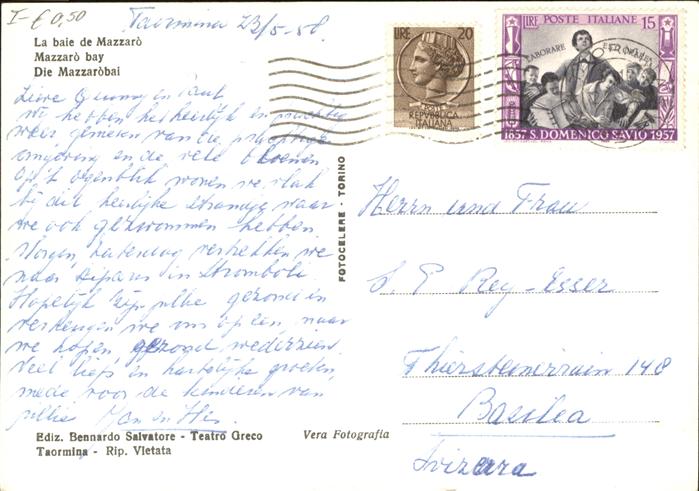 I - € 0,50
Taormina 23/5-58
La baie de Mazzarò
Mazzarò bay
Die Mazzaròbai
Lieve en
we hebben het heerlijk en prachtig
weer genieten van de prachtige
omgeving en de vele bloemen
Op 't ogenblik wonen we vlak
bij dit heerlijke strandje waar
we ook gezwommen hebben.
Morgen, zaterdag vertrekken we
naar Liparis en Stromboli.
Hopelijk zijn jullie gezond en
verheugen we ons op een, naar
we hopen, gezond wederzien.
Veel liefs en hartelijke groeten,
mede voor de kinderen van
jullie
Ediz. Bennardo Salvatore - Teatro Greco
Taormina - Rip. Vietata
Vera Fotografia
FOTOCELERE - TORINO
LIRE 20
POSTE
REPVBBLICA
ITALIANA
LIRE POSTE ITALIANE 15
LABORARE
1857 S. DOMENICO SAVIO 1957
Herrn und Frau
S. E Rey-Esser
Thiersteinerrain 148
Basilea
Svizzera